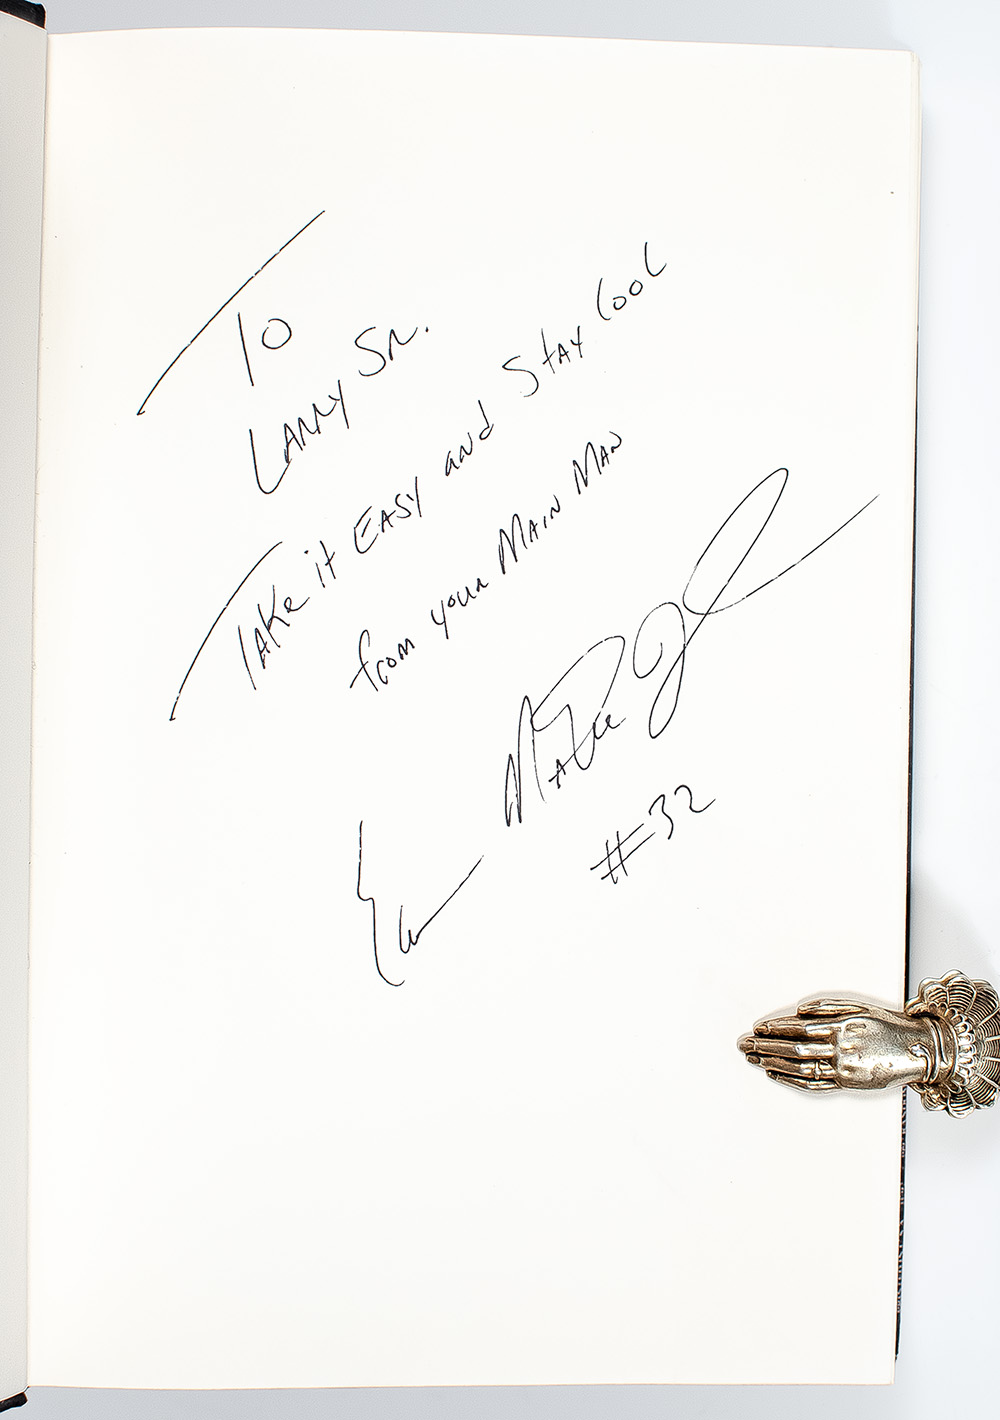 To
Larry Sr.
Take it Easy and Stay Cool
from your Main Man
#32